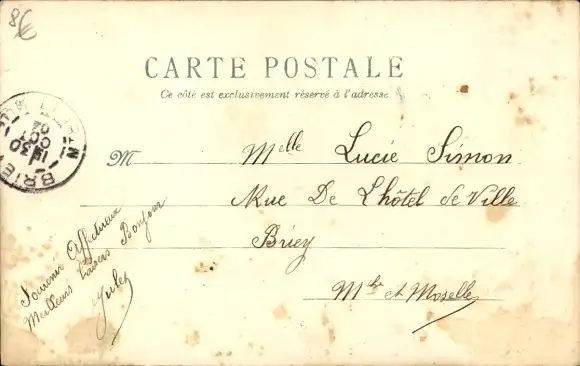 8€
CARTE POSTALE
Ce côté est exclusivement réservé à l'adresse
M
Melle Lucie Simon
Rue De L'hôtel de Ville
Briey
Mthe et Moselle
Souvenir Affectueux
Meilleurs Baisers Bonjour
Jules
BRIEY